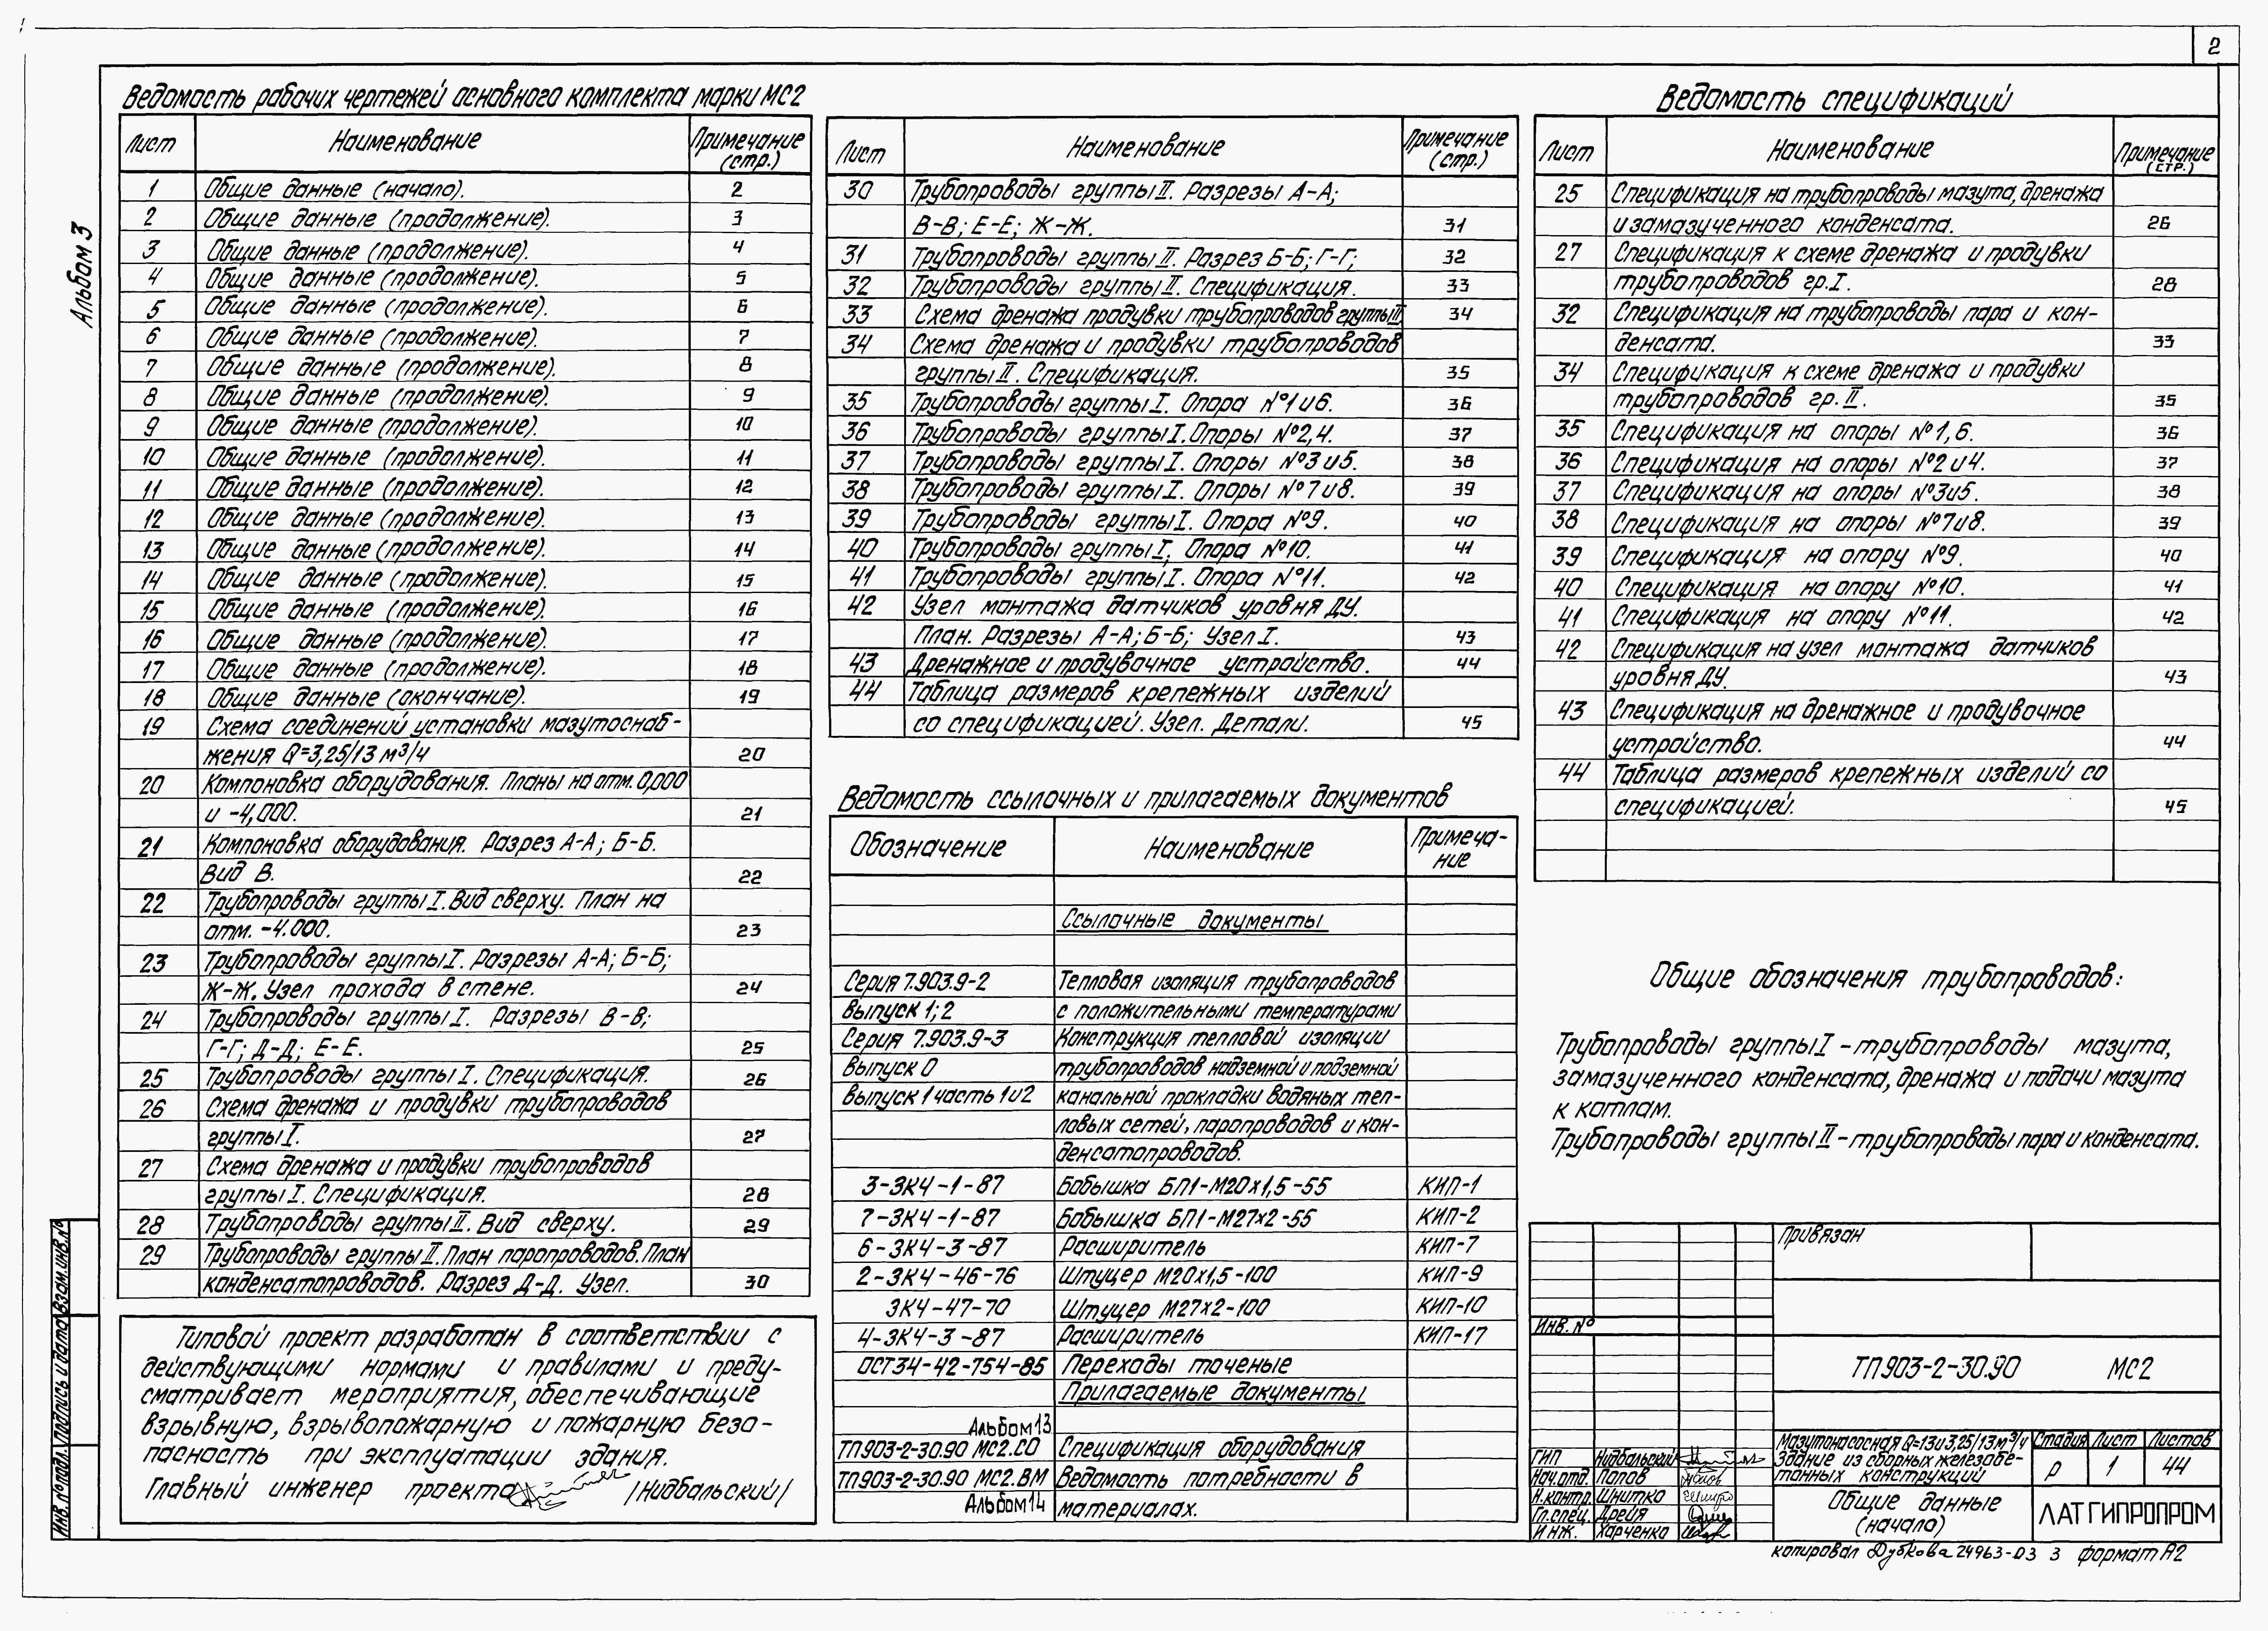 2
Альбом 3
Ведомость рабочих чертежей основного комплекта марки МС2
Лист Наименование Примечание (стр.)
1 Общие данные (начало). 2
2 Общие данные (продолжение). 3
3 Общие данные (продолжение). 4
4 Общие данные (продолжение). 5
5 Общие данные (продолжение). 6
6 Общие данные (продолжение). 7
7 Общие данные (продолжение). 8
8 Общие данные (продолжение). 9
9 Общие данные (продолжение). 10
10 Общие данные (продолжение). 11
11 Общие данные (продолжение). 12
12 Общие данные (продолжение). 13
13 Общие данные (продолжение). 14
14 Общие данные (продолжение). 15
15 Общие данные (продолжение). 16
16 Общие данные (продолжение). 17
17 Общие данные (продолжение). 18
18 Общие данные (окончание). 19
19 Схема соединений установки мазутоснаб-
жения Q=3,25/13 м³/ч 20
20 Компоновка оборудования. Планы на отм. 0,000
и -4,000. 21
21 Компоновка оборудования. Разрез А-А; Б-Б.
Вид В. 22
22 Трубопроводы группы I. Вид сверху. План на
отм. -4.000. 23
23 Трубопроводы группы I. Разрезы А-А; Б-Б;
Ж-Ж. Узел прохода в стене. 24
24 Трубопроводы группы I. Разрезы В-В;
Г-Г; Д-Д; Е-Е. 25
25 Трубопроводы группы I. Спецификация. 26
26 Схема дренажа и продувки трубопроводов
группы I. 27
27 Схема дренажа и продувки трубопроводов
группы I. Спецификация. 28
28 Трубопроводы группы II. Вид сверху. 29
29 Трубопроводы группы II. План паропроводов. План
конденсатопроводов. Разрез Д-Д. Узел. 30
Типовой проект разработан в соответствии с
действующими нормами и правилами и преду-
сматривает мероприятия, обеспечивающие
взрывную, взрывопожарную и пожарную безо-
пасность при эксплуатации здания.
Главный инженер проекта /Нидбальский/
Лист Наименование Примечание (стр.)
30 Трубопроводы группы II. Разрезы А-А;
В-В; Е-Е; Ж-Ж. 31
31 Трубопроводы группы II. Разрез Б-Б; Г-Г; 32
32 Трубопроводы группы II. Спецификация. 33
33 Схема дренажа продувки трубопроводов группы II 34
34 Схема дренажа и продувки трубопроводов
группы II. Спецификация. 35
35 Трубопроводы группы I. Опора №1 и 6. 36
36 Трубопроводы группы I. Опоры №2,4. 37
37 Трубопроводы группы I. Опоры №3 и 5. 38
38 Трубопроводы группы I. Опоры №7 и 8. 39
39 Трубопроводы группы I. Опора №9. 40
40 Трубопроводы группы I. Опора №10. 41
41 Трубопроводы группы I. Опора №11. 42
42 Узел монтажа датчиков уровня ДУ.
План. Разрезы А-А; Б-Б; Узел I. 43
43 Дренажное и продувочное устройство. 44
44 Таблица размеров крепежных изделий
со спецификацией. Узел. Детали. 45
Ведомость ссылочных и прилагаемых документов
Обозначение Наименование Примеча-
ние
Ссылочные документы
Серия 7.903.9-2 Тепловая изоляция трубопроводов
выпуск 1; 2 с положительными температурами
Серия 7.903.9-3 Конструкция тепловой изоляции
выпуск 0 трубопроводов надземной и подземной
выпуск 1 часть 1 и 2 канальной прокладки водяных теп-
ловых сетей, паропроводов и кон-
денсатопроводов.
3-ЗК4-1-87 Бобышка БП1-М20х1,5-55 КИП-1
7-ЗК4-1-87 Бобышка БП1-М27х2-55 КИП-2
6-ЗК4-3-87 Расширитель КИП-7
2-ЗК4-46-76 Штуцер М20х1,5-100 КИП-9
ЗК4-47-70 Штуцер М27х2-100 КИП-10
4-ЗК4-3-87 Расширитель КИП-17
ОСТ34-42-754-85 Переходы точеные
Прилагаемые документы
Альбом 13
ТП903-2-30.90 МС2.СО Спецификация оборудования
ТП903-2-30.90 МС2.ВМ Ведомость потребности в
Альбом 14 материалах.
Ведомость спецификаций
Лист Наименование Примечание (стр.)
25 Спецификация на трубопроводы мазута, дренажа
и замазученного конденсата. 26
27 Спецификация к схеме дренажа и продувки
трубопроводов гр. I. 28
32 Спецификация на трубопроводы пара и кон-
денсата. 33
34 Спецификация к схеме дренажа и продувки
трубопроводов гр. II. 35
35 Спецификация на опоры №1,6. 36
36 Спецификация на опоры №2 и 4. 37
37 Спецификация на опоры №3 и 5. 38
38 Спецификация на опоры №7 и 8. 39
39 Спецификация на опору №9. 40
40 Спецификация на опору №10. 41
41 Спецификация на опору №11. 42
42 Спецификация на узел монтажа датчиков
уровня ДУ. 43
43 Спецификация на дренажное и продувочное
устройство. 44
44 Таблица размеров крепежных изделий со
спецификацией. 45
Общие обозначения трубопроводов:
Трубопроводы группы I - трубопроводы мазута,
замазученного конденсата, дренажа и подачи мазута
к котлам.
Трубопроводы группы II - трубопроводы пара и конденсата.
Привязан
Инв. №
ТП903-2-30.90 МС2
Мазутонасосная Q=13 и 3,25/13 м³/ч
Здание из сборных железобе-
тонных конструкций
Стадия Лист Листов
Р 1 44
ГИП Нидбальский
Нач.отд Попов
Н.контр. Шнитко
Гл.спец. Дрейя
Инж. Харченко
Общие данные
(начало)
ЛАТГИПРОПРОМ
копировал Дубкова 24963-03 3 формат А2
Инв. № подл. Подпись и дата Взам. инв. №